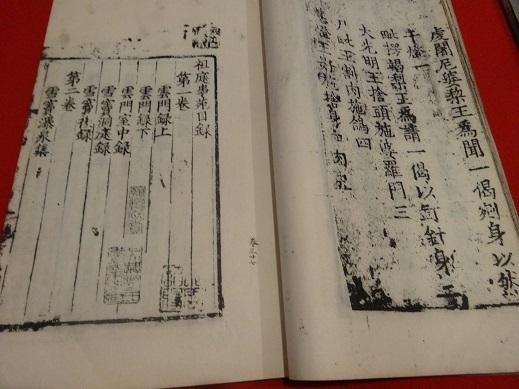 虔闍尼婆梨王爲聞一偈剜身以然
千燈一
毗楞竭梨王爲請一偈以針身二
大光明王捨頭施婆羅門三
尸毗王割肉施鴿四
祖庭事苑目録
第一卷
雲門録上
雲門録下
雲門室中録
雪竇洞庭録
雪竇後録
第二卷
雪竇瀑泉集